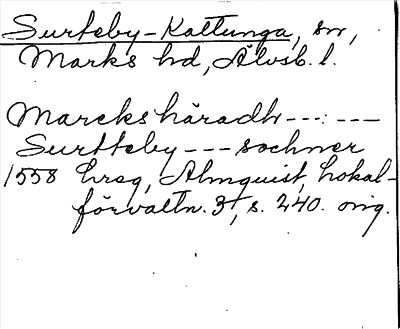 Surteby-Kattunga, sn,
Marks hd, Älvsb. l.
Marckshäradh ---:---
Surtteby --- sochner
1558 hreg, Almquist, Lokal-
förvaltn. 3, s. 240. orig.